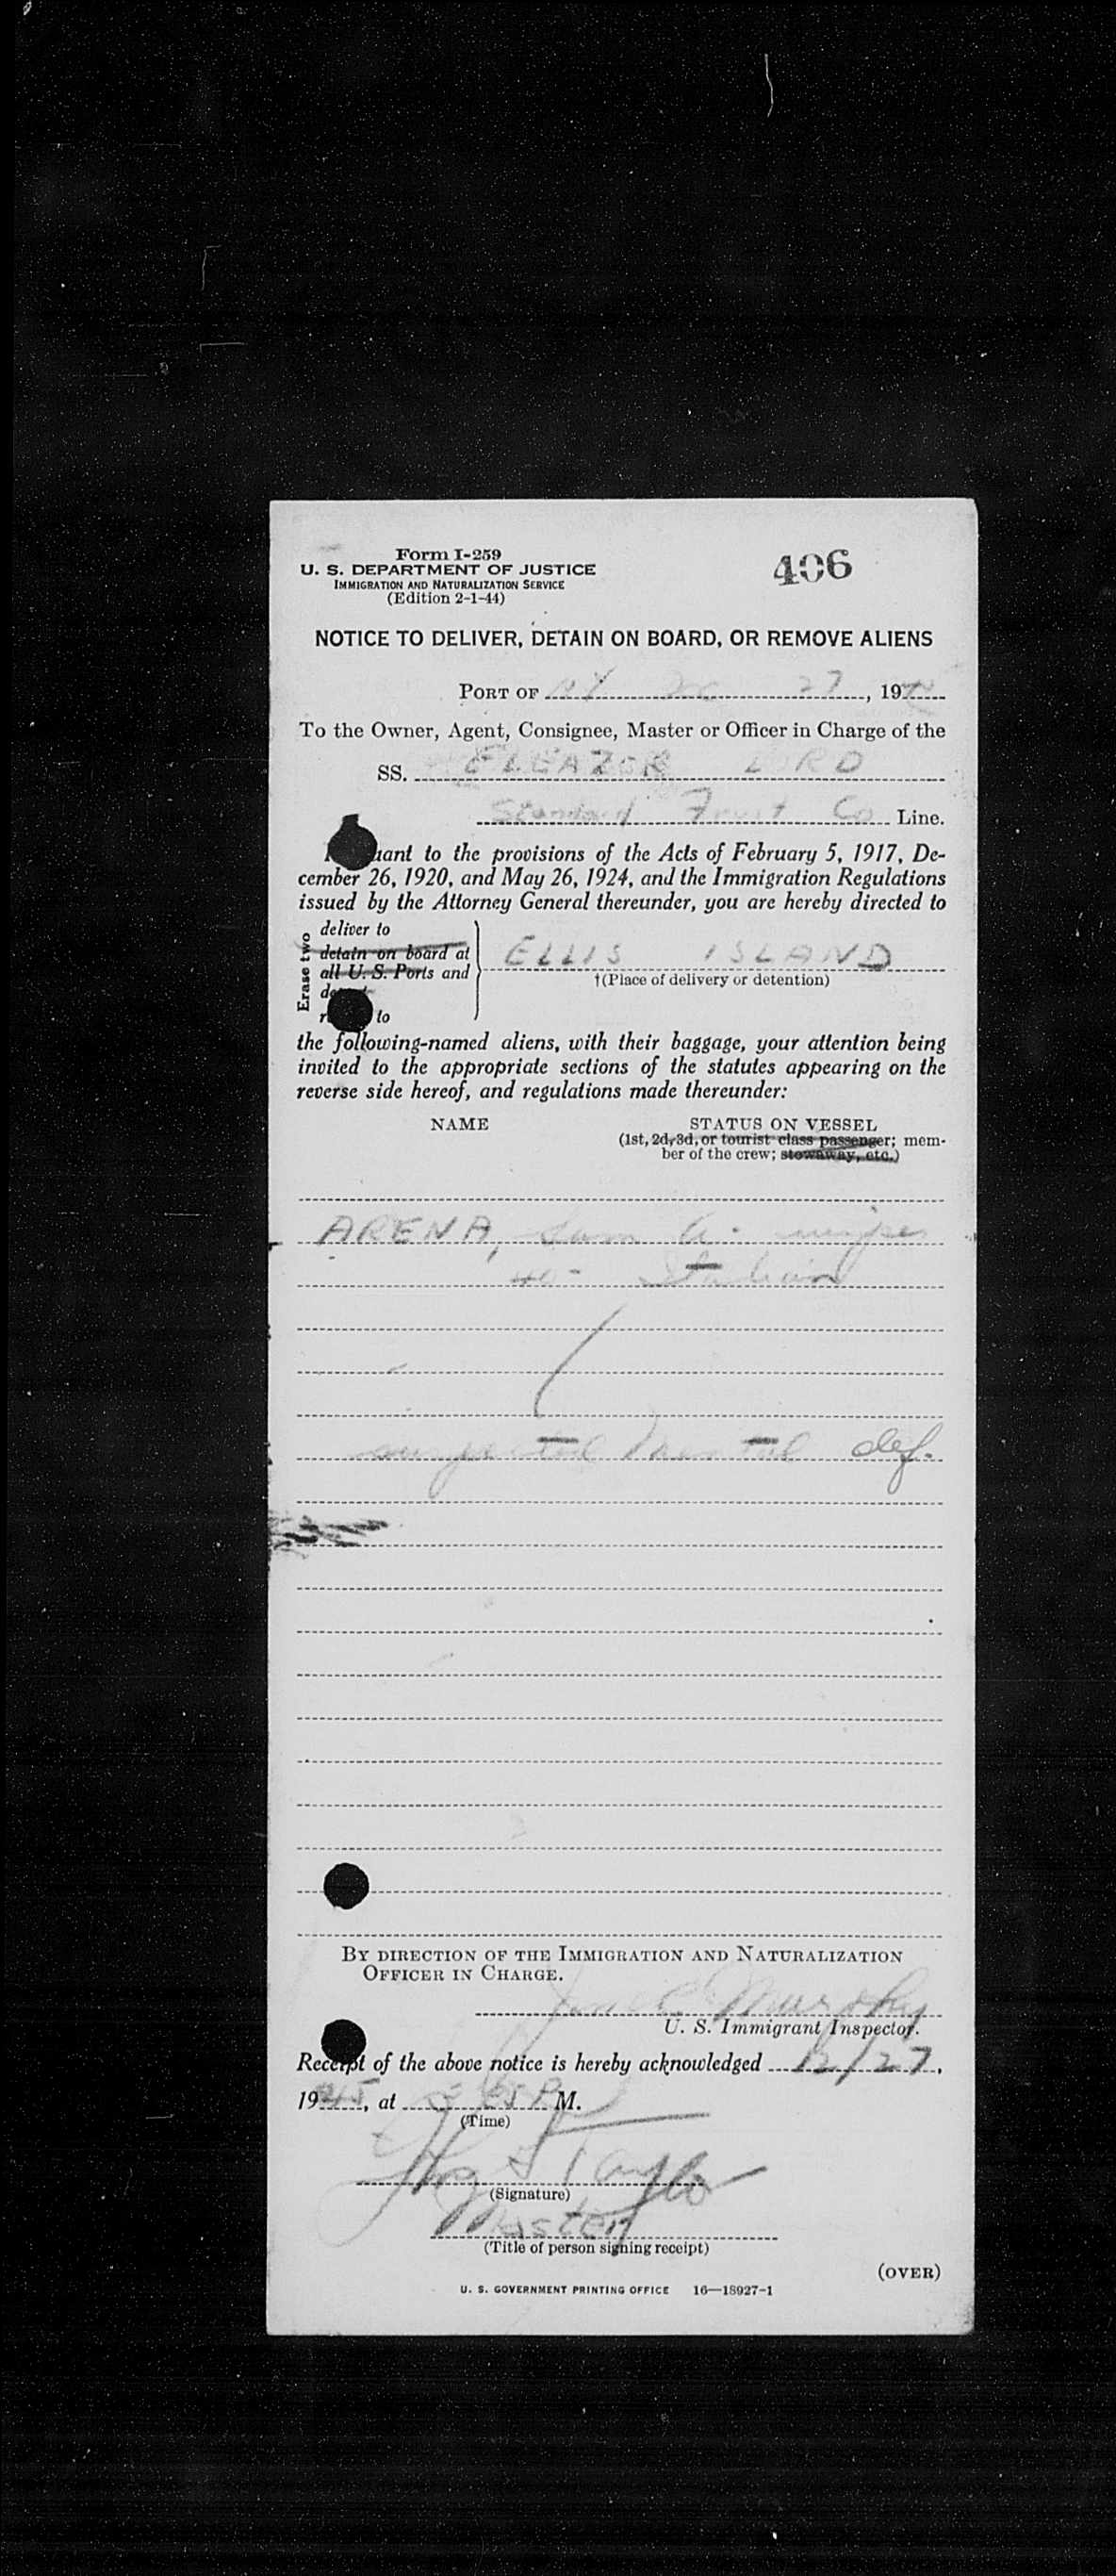 Form I-259
U. S. DEPARTMENT OF JUSTICE
IMMIGRATION AND NATURALIZATION SERVICE
(Edition 2-1-44)
406
NOTICE TO DELIVER, DETAIN ON BOARD, OR REMOVE ALIENS
PORT OF NY 27, 19
To the Owner, Agent, Consignee, Master or Officer in Charge of the
SS. ELEAZOR LORD
Standard Fruit Co Line.
to the provisions of the Acts of February 5, 1917, De-
cember 26, 1920, and May 26, 1924, and the Immigration Regulations
issued by the Attorney General thereunder, you are hereby directed to
Erase two
deliver to
detain on board at
all U. S. Ports and
to
ELLIS ISLAND
†(Place of delivery or detention)
the following-named aliens, with their baggage, your attention being
invited to the appropriate sections of the statutes appearing on the
reverse side hereof, and regulations made thereunder:
NAME
STATUS ON VESSEL
(1st, 2d, 3d, or tourist class passenger; mem-
ber of the crew; stowaway, etc.)
ARENA, Sam A. wiper
40- Italian
suspected Mental def.
BY DIRECTION OF THE IMMIGRATION AND NATURALIZATION
OFFICER IN CHARGE.
Murphy
U. S. Immigrant Inspector.
Receipt of the above notice is hereby acknowledged 12/27,
1945, at P M.
(Time)
Taylor
(Signature)
Master
(Title of person signing receipt)
(OVER)
U. S. GOVERNMENT PRINTING OFFICE 16—18927-1